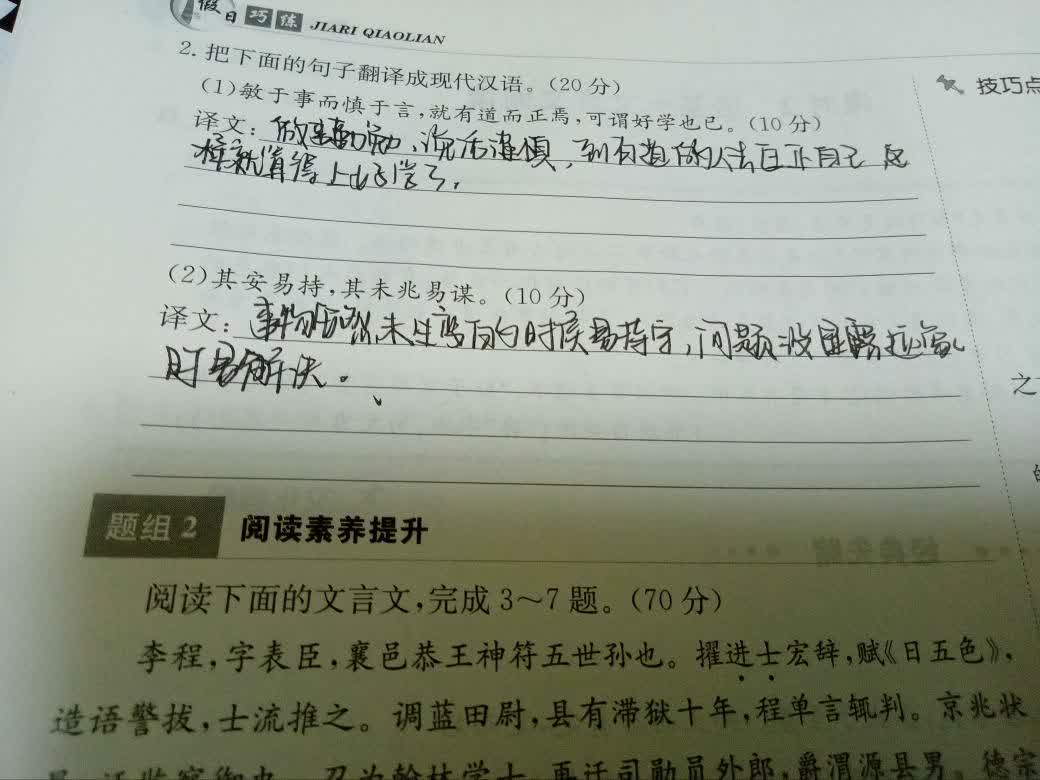 假日巧练 JIARI QIAOLIAN
2. 把下面的句子翻译成现代汉语。(20分)
技巧点
(1)敏于事而慎于言,就有道而正焉,可谓好学也已。(10分)
译文: 做事勤勉,说话谨慎,到有道的人去匡正自己 这
样就算得上好学了。
(2)其安易持,其未兆易谋。(10分)
译文: 事物 未生变 的时侯易持守,问题没显露
时易解决。
之
题组2 阅读素养提升
阅读下面的文言文,完成3~7题。(70分)
李程,字表臣,襄邑恭王神符五世孙也。擢进士宏辞,赋《日五色》,
造语警拔,士流推之。调蓝田尉,县有滞狱十年,程单言辄判。京兆状
召为翰林学士,再迁司勋员外郎,爵渭源县男。德宗